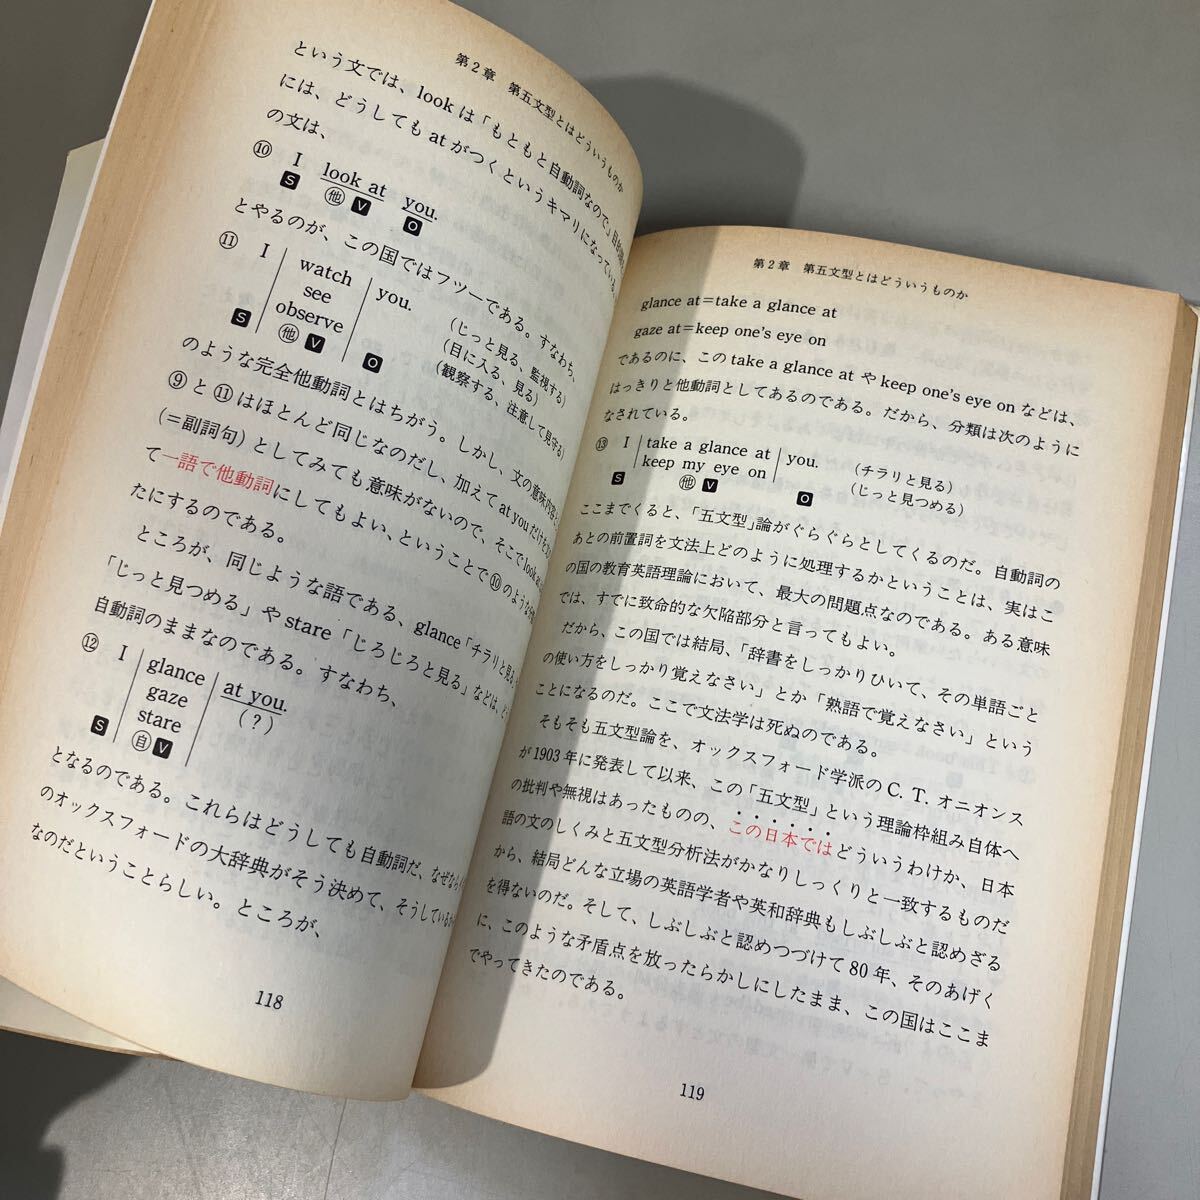 第2章　第五文型とはどういうものか
という文では、lookは「もともと自動詞なので」
には、どうしてもatがつくというキマリになっている
の文は、
⑩ I look at you.
S 他 V O
とやるのが、この国ではフツーである。すなわち、
⑪ I watch you. (じっと見る、監視する)
see (目に入る、見る)
observe (観察する、注意して見守る)
S 他 V O
のような完全他動詞とはちがう。しかし、文の意味内容
⑨と⑪はほとんど同じなのだし、加えてat youだけを
(=副詞句)としてみても意味がないので、そこでlook at
て一語で他動詞にしてもよい、ということで⑩のような
たにするのである。
ところが、同じような語である、glance「チラリと見る」
「じっと見つめる」やstare「じろじろと見る」などは、
自動詞のままなのである。すなわち、
⑫ I glance at you.
gaze (?)
stare
S 自 V
となるのである。これらはどうしても自動詞だ、なぜなら
のオックスフォードの大辞典がそう決めて、そうしているか
なのだということらしい。ところが、
118
第2章　第五文型とはどういうものか
glance at=take a glance at
gaze at=keep one's eye on
であるのに、このtake a glance atやkeep one's eye onなどは、
はっきりと他動詞としてあるのである。だから、分類は次のように
なされている。
⑬ I take a glance at you. (チラリと見る)
keep my eye on (じっと見つめる)
S 他 V O
ここまでくると、「五文型」論がぐらぐらとしてくるのだ。自動詞の
あとの前置詞を文法上どのように処理するかということは、実はこ
の国の教育英語理論において、最大の問題点なのである。ある意味
では、すでに致命的な欠陥部分と言ってもよい。
だから、この国では結局、「辞書をしっかりひいて、その単語ごと
の使い方をしっかり覚えなさい」とか「熟語で覚えなさい」という
ことになるのだ。ここで文法学は死ぬのである。
そもそも五文型論を、オックスフォード学派のC. T. オニオンス
が1903年に発表して以来、この「五文型」という理論枠組み自体へ
の批判や無視はあったものの、この日本ではどういうわけか、日本
語の文のしくみと五文型分析法がかなりしっくりと一致するものだ
から、結局どんな立場の英語学者や英和辞典もしぶしぶと認めざる
を得ないのだ。そして、しぶしぶと認めつづけて80年、そのあげく
に、このような矛盾点を放ったらかしにしたまま、この国はここま
でやってきたのである。
119